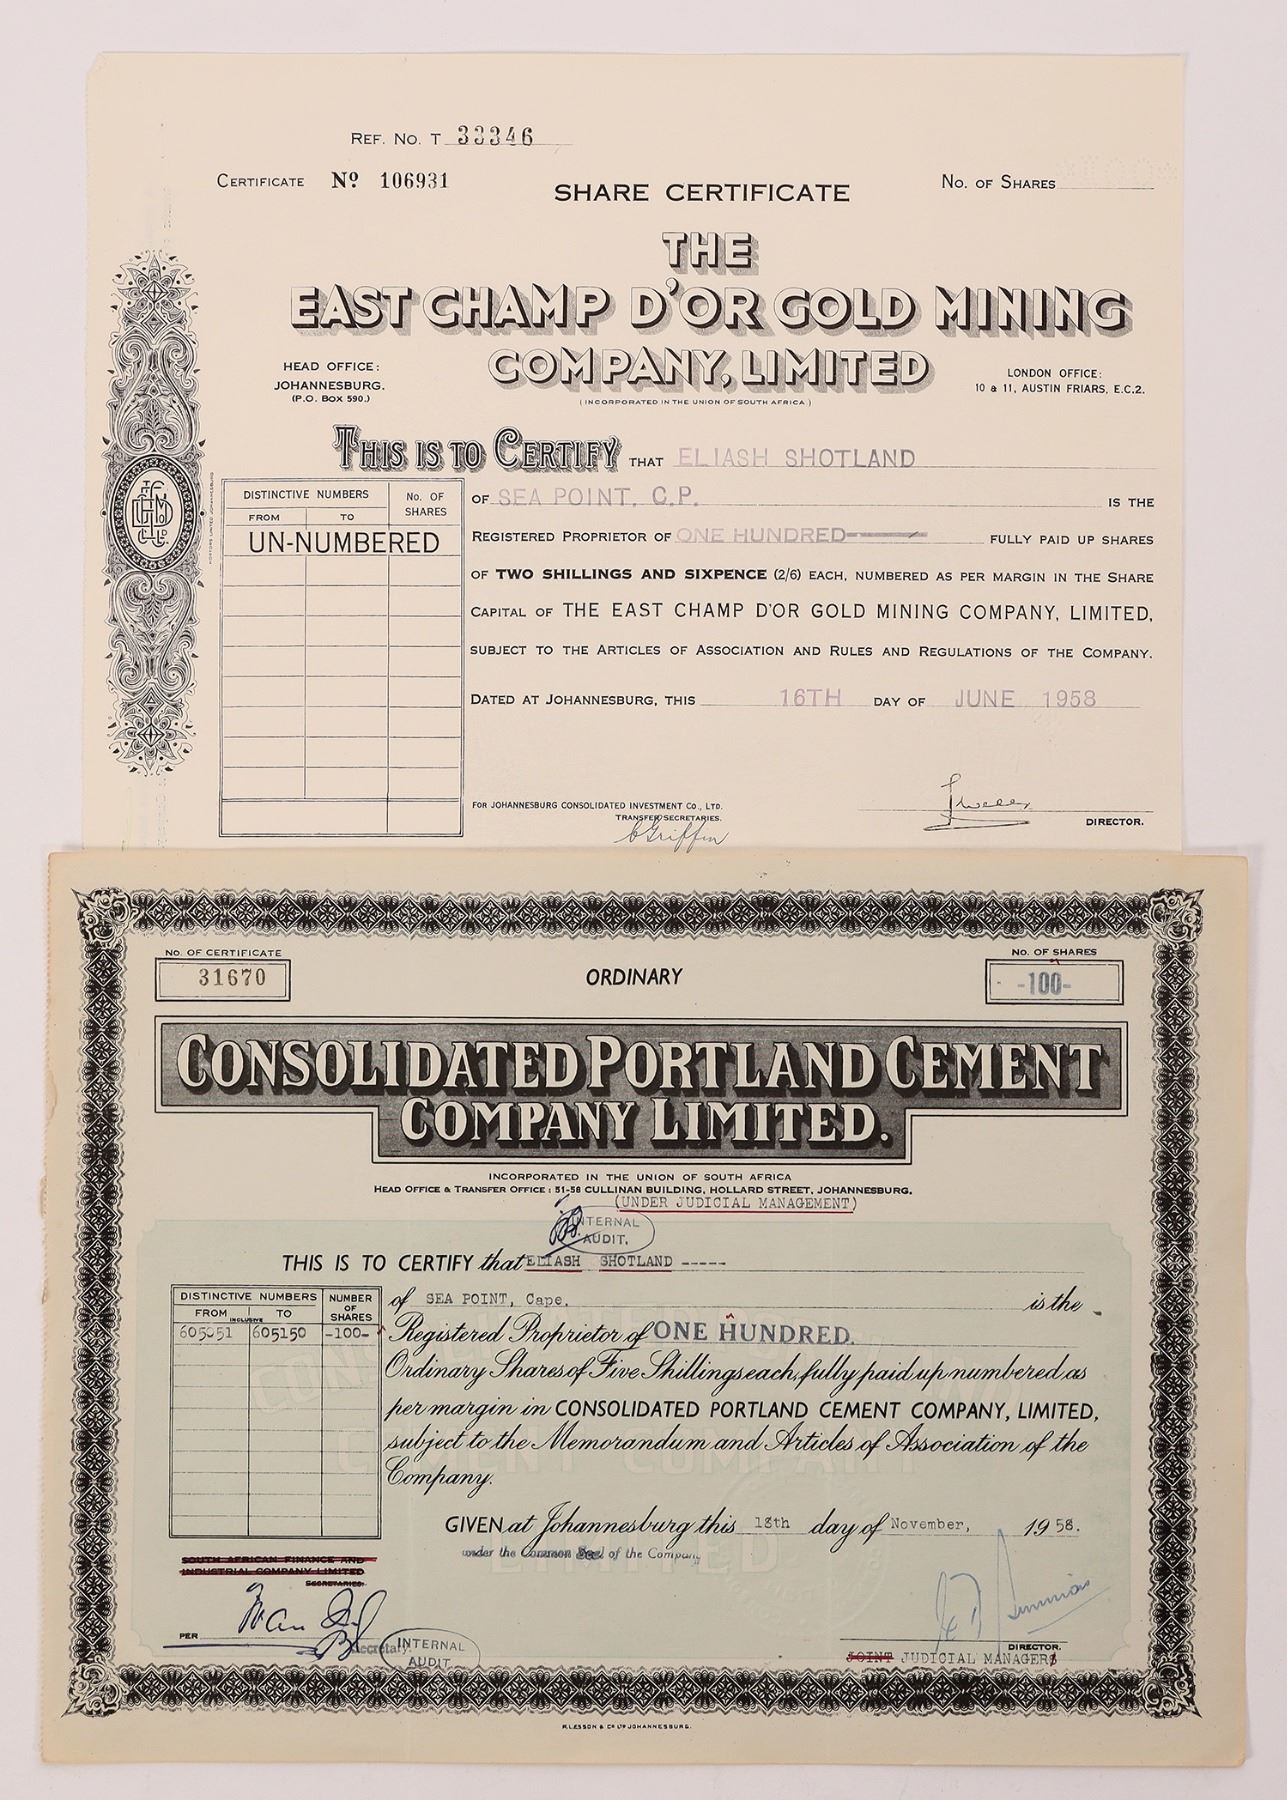 REF. NO. T 33346
CERTIFICATE Nº 106931
SHARE CERTIFICATE
NO. OF SHARES
THE
EAST CHAMP D'OR GOLD MINING
COMPANY, LIMITED
(INCORPORATED IN THE UNION OF SOUTH AFRICA.)
HEAD OFFICE:
JOHANNESBURG.
(P.O. BOX 590.)
LONDON OFFICE:
10 & 11, AUSTIN FRIARS, E.C.2.
THIS IS TO CERTIFY THAT ELIASH SHOTLAND
OF SEA POINT, C.P. IS THE
REGISTERED PROPRIETOR OF ONE HUNDRED FULLY PAID UP SHARES
OF TWO SHILLINGS AND SIXPENCE (2/6) EACH, NUMBERED AS PER MARGIN IN THE SHARE
CAPITAL OF THE EAST CHAMP D'OR GOLD MINING COMPANY, LIMITED,
SUBJECT TO THE ARTICLES OF ASSOCIATION AND RULES AND REGULATIONS OF THE COMPANY.
DATED AT JOHANNESBURG, THIS 16TH DAY OF JUNE 1958
DISTINCTIVE NUMBERS
NO. OF SHARES
FROM TO
UN-NUMBERED
FOR JOHANNESBURG CONSOLIDATED INVESTMENT CO., LTD.
TRANSFER SECRETARIES.
C Griffin
DIRECTOR.
NO. OF CERTIFICATE
31670
ORDINARY
NO. OF SHARES
-100-
CONSOLIDATED PORTLAND CEMENT
COMPANY LIMITED.
INCORPORATED IN THE UNION OF SOUTH AFRICA
HEAD OFFICE & TRANSFER OFFICE: 51-58 CULLINAN BUILDING, HOLLARD STREET, JOHANNESBURG.
(UNDER JUDICIAL MANAGEMENT)
INTERNAL
AUDIT.
THIS IS TO CERTIFY that ELIASH SHOTLAND -----
of SEA POINT, Cape. is the
Registered Proprietor of ONE HUNDRED.
Ordinary Shares of Five Shillings each, fully paid up numbered as
per margin in CONSOLIDATED PORTLAND CEMENT COMPANY, LIMITED,
subject to the Memorandum and Articles of Association of the
Company.
DISTINCTIVE NUMBERS
NUMBER OF SHARES
FROM INCLUSIVE TO
605051 605150 -100-
GIVEN at Johannesburg this 18th day of November, 1958.
under the Common Seal of the Company
SOUTH AFRICAN FINANCE AND
INDUSTRIAL COMPANY LIMITED
SECRETARIES.
PER
Secretary.
INTERNAL
AUDIT
DIRECTOR.
JOINT JUDICIAL MANAGERS